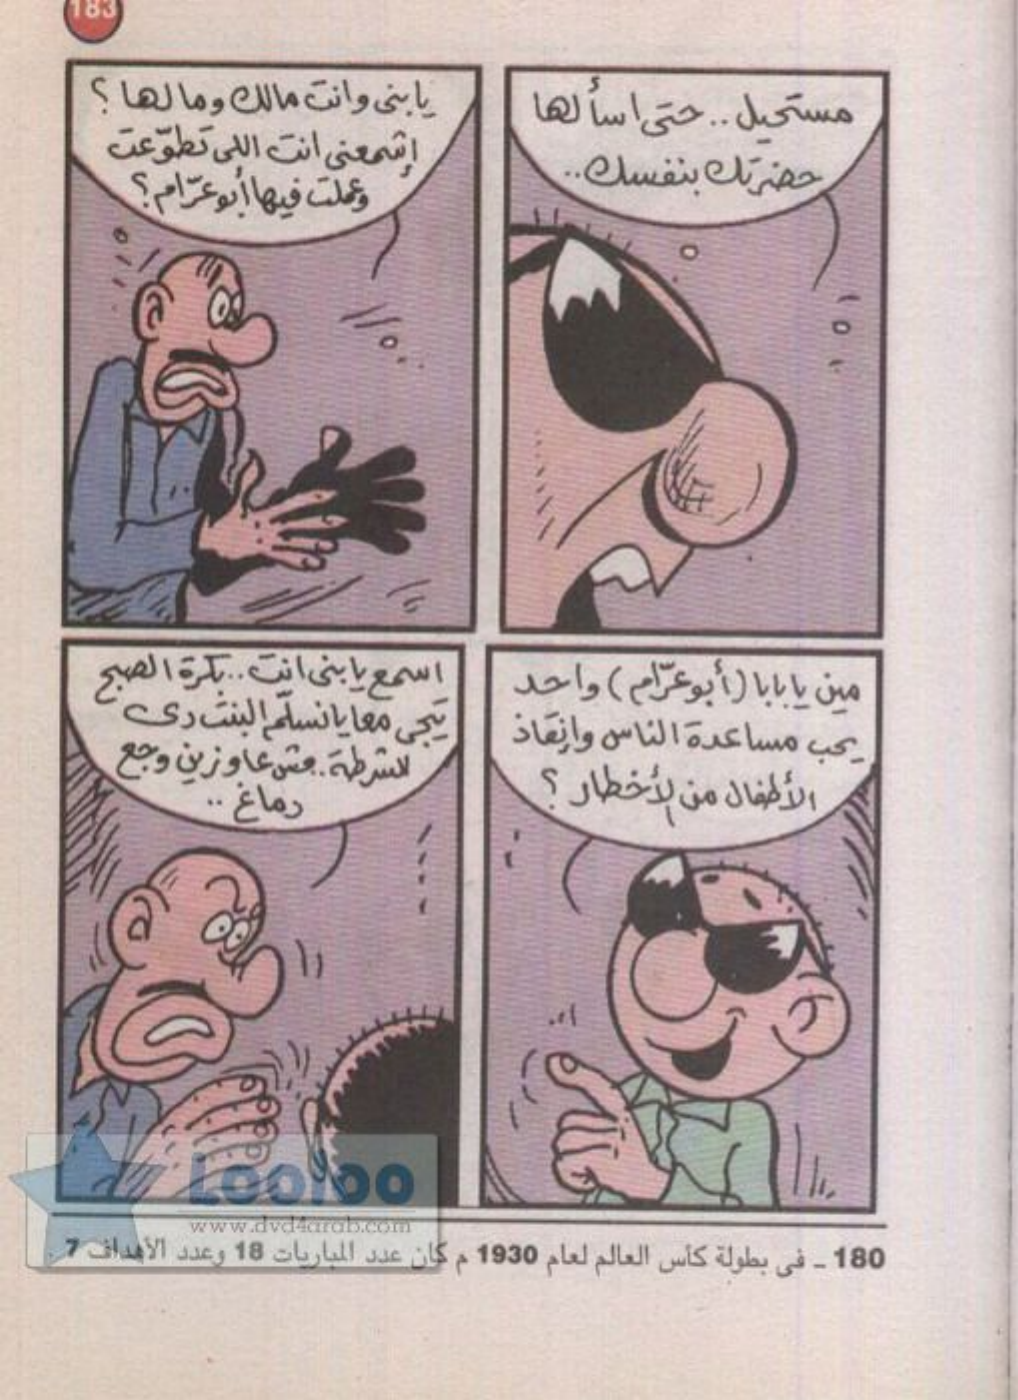 183
مستحيل.. حتى اسألها
حضرتك بنفسك..
يا بنى وانت مالك ومالها؟
إشمعنى انت اللى تطوّعت
وعملت فيها أبو عرّام؟
مين يا بابا (أبو عرّام) واحد
يحب مساعدة الناس وإنقاذ
الأطفال من الأخطار؟
اسمع يا بنى انت.. بكرة الصبح
تيجى معايا نسلّم البنت دى
للشرطة.. مش عاوزين وجع
دماغ..
Looloo
www.dvd4arab.com
180 ـ فى بطولة كأس العالم لعام 1930 م كان عدد المباريات 18 وعدد الأهداف 7